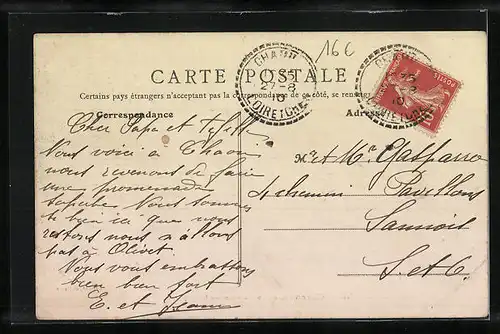 16 €
CARTE POSTALE
Certains pays étrangers n'acceptent pas la correspondance de ce côté, se renseigner
Correspondance
Adresse
CHAON
27-8
10
LOIR-ET-CHER
POSTES
Cher Papa et
Nous voici à Chaon
nous revenons de faire
une promenade
superbe Nous sommes
si bien ici que nous
restons nous n'allons
pas à Olivet
Nous vous embrassons
bien bien fort
E. et Jeanne
Mr et Me Gasparro
4 chemin Pavillons
Sannois
S. et O.